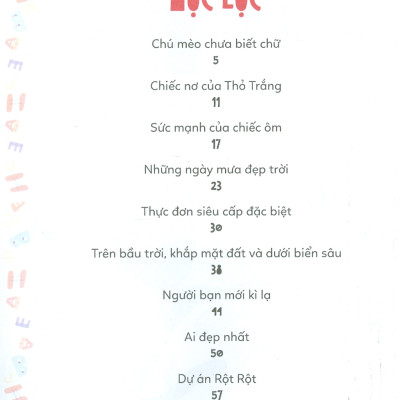 MỤC LỤC
Chú mèo chưa biết chữ
5
Chiếc nơ của Thỏ Trắng
11
Sức mạnh của chiếc ôm
17
Những ngày mưa đẹp trời
23
Thực đơn siêu cấp đặc biệt
30
Trên bầu trời, khắp mặt đất và dưới biển sâu
38
Người bạn mới kì lạ
44
Ai đẹp nhất
50
Dự án Rột Rột
57